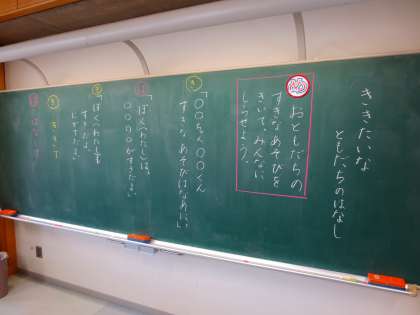 ききたいな
ともだちのはなし
おともだちの
すきなあそびを
きいて、みんなに
しらせよう。
き
「〇〇ちゃん〇〇くん
すきなあそびはなあに。」
は
「ぼく(わたし)は、
〇〇〇〇がすきだよ。
き
「ぼく(わたし)も
すきだよ。
き
ききて
は
はなして